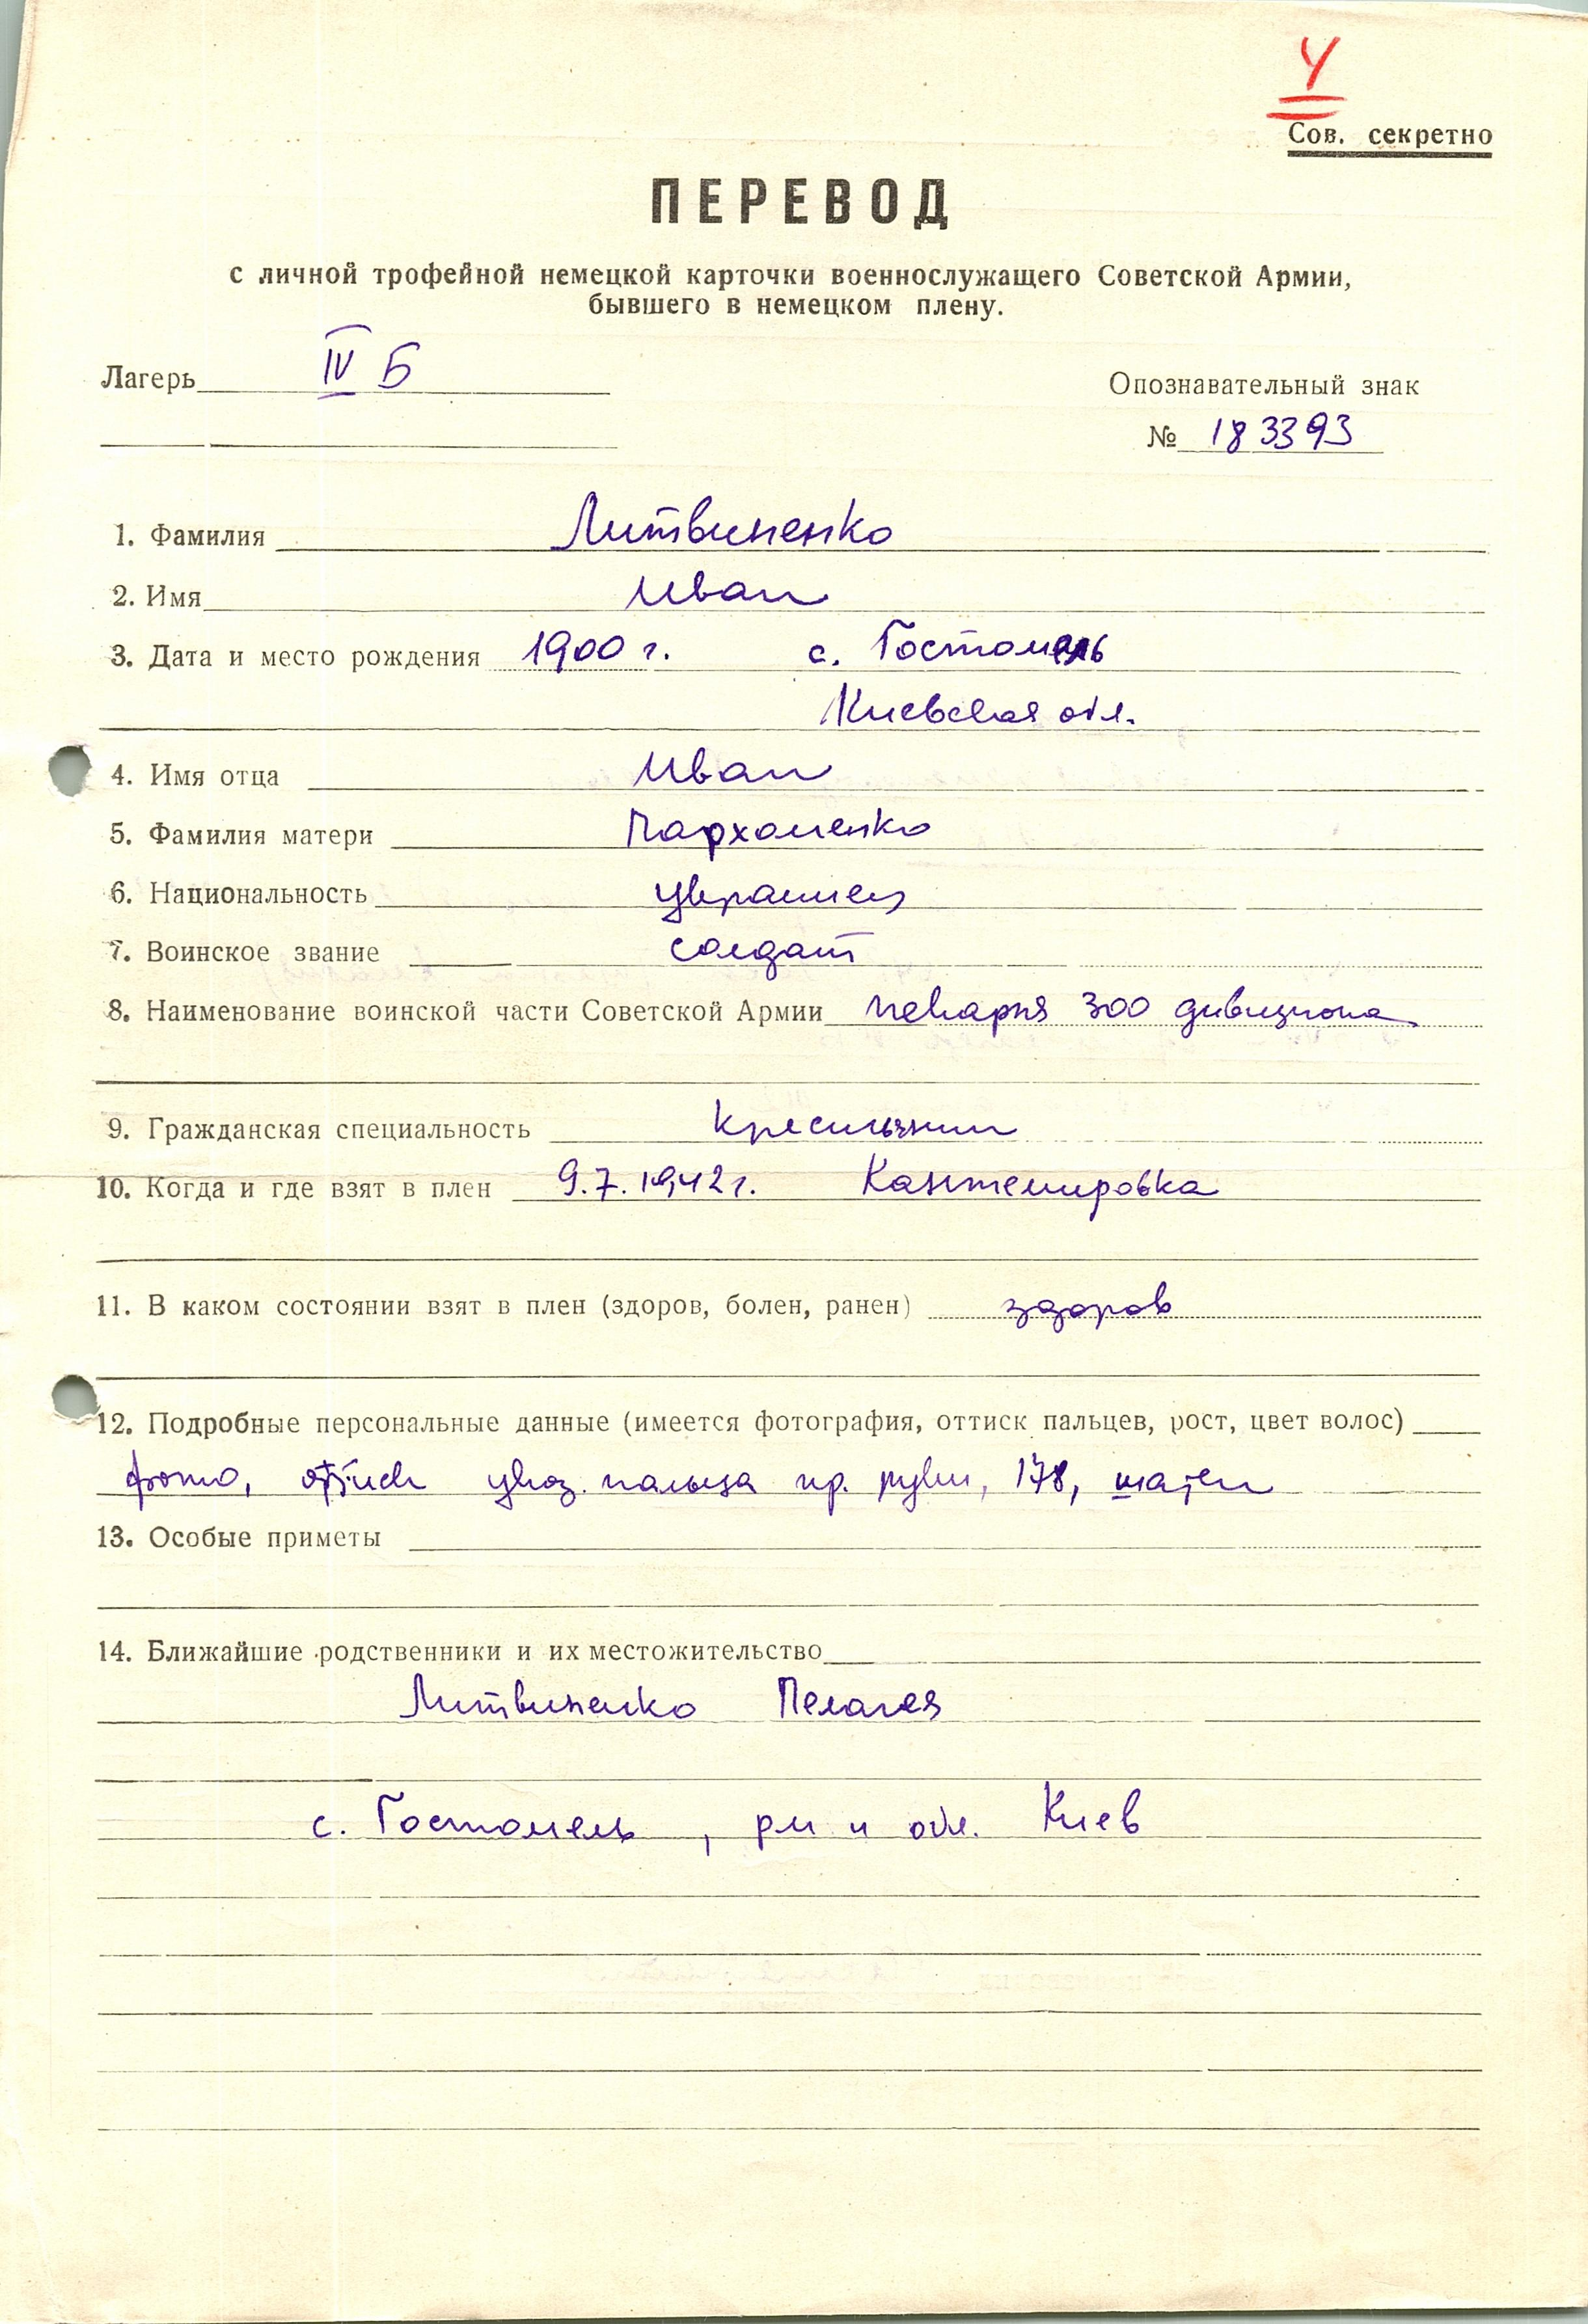 У
Сов. секретно
ПЕРЕВОД
с личной трофейной немецкой карточки военнослужащего Советской Армии,
бывшего в немецком плену.
Лагерь IV Б
Опознавательный знак
№ 183393
1. Фамилия Литвиненко
2. Имя Иван
3. Дата и место рождения 1900 г. с. Гостомель
Киевская обл.
4. Имя отца Иван
5. Фамилия матери Пархоменко
6. Национальность украинец
7. Воинское звание солдат
8. Наименование воинской части Советской Армии пекарня 300 дивизиона
9. Гражданская специальность крестьянин
10. Когда и где взят в плен 9.7.1942 г. Кантемировка
11. В каком состоянии взят в плен (здоров, болен, ранен) здоров
12. Подробные персональные данные (имеется фотография, оттиск пальцев, рост, цвет волос)
фото, оттиск указ. пальца пр. руки, 178, шатен
13. Особые приметы
14. Ближайшие родственники и их местожительство
Литвиненко Пелагея
с. Гостомель, р-н и обл. Киев